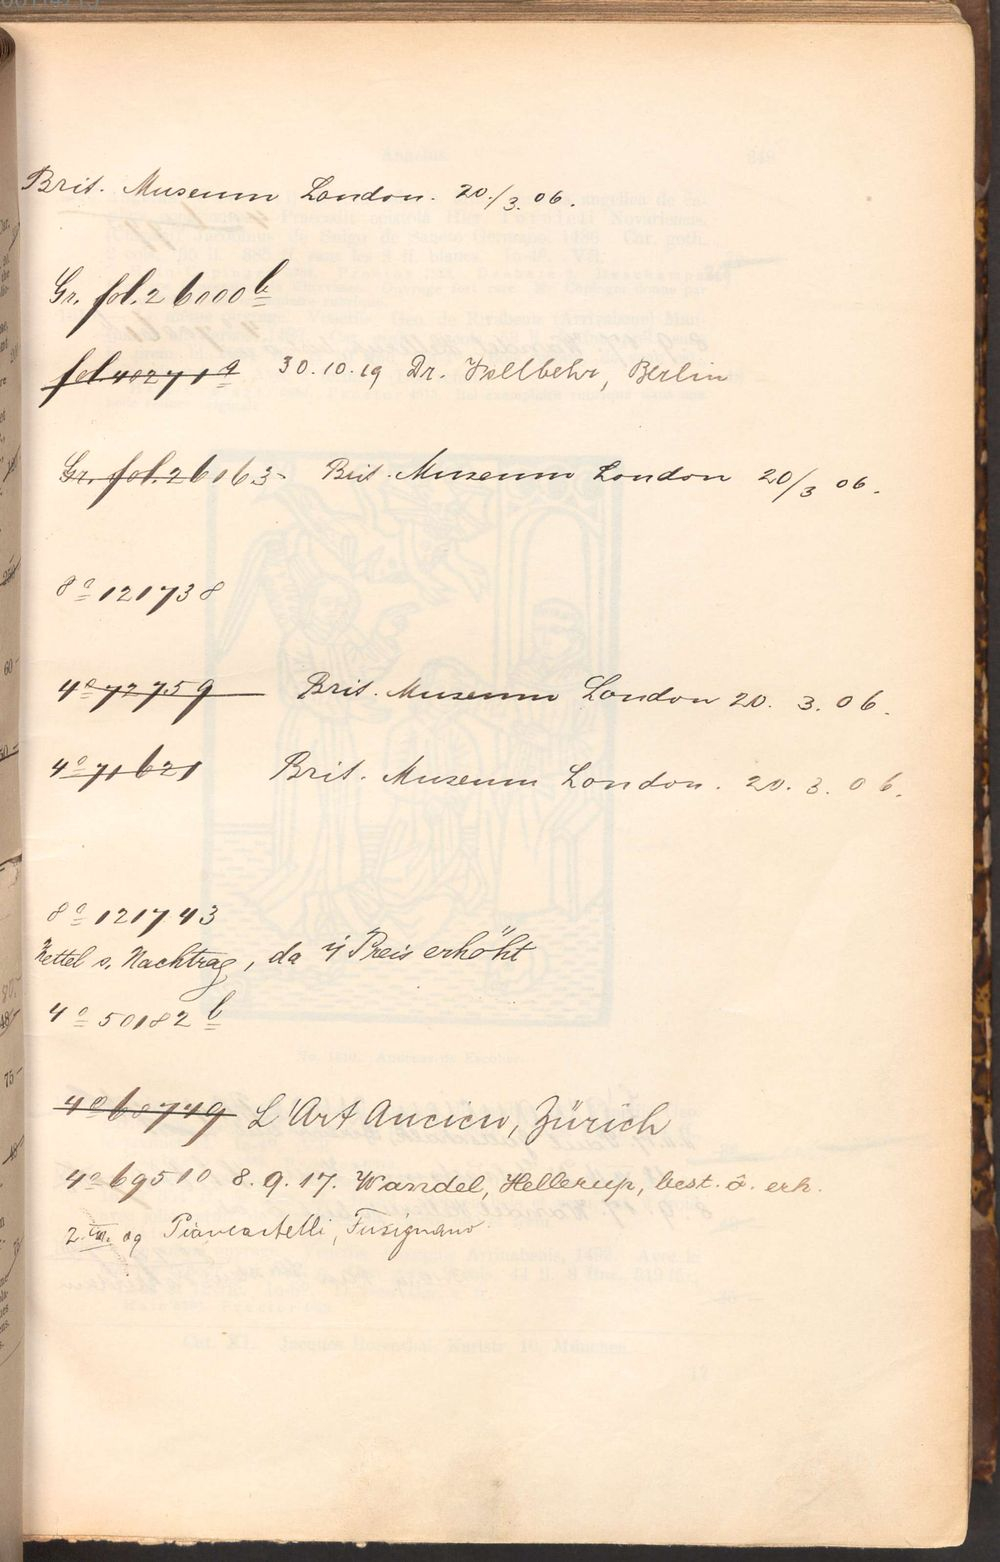 Brit. Museum London. 20./3. 06.
Gr. fol. 26000 b
fol. 40271 a 30.10.19 Dr. Berlin
Gr. fol. 26163 Brit. Museum London 20/3 06.
8º 121738
4º 72759 Brit. Museum London 20. 3. 06.
4º 71621 Brit. Museum London. 20. 3. 06.
8º 121743
Zettel s. Nachtrag, da Preis erhöht
4º 50182 b
4º 68749 L'Art Ancien, Zürich
4º 69510 8. 9. 17. Wandel, Hellerup, best. erh.
09 Piancastelli, Fusignano